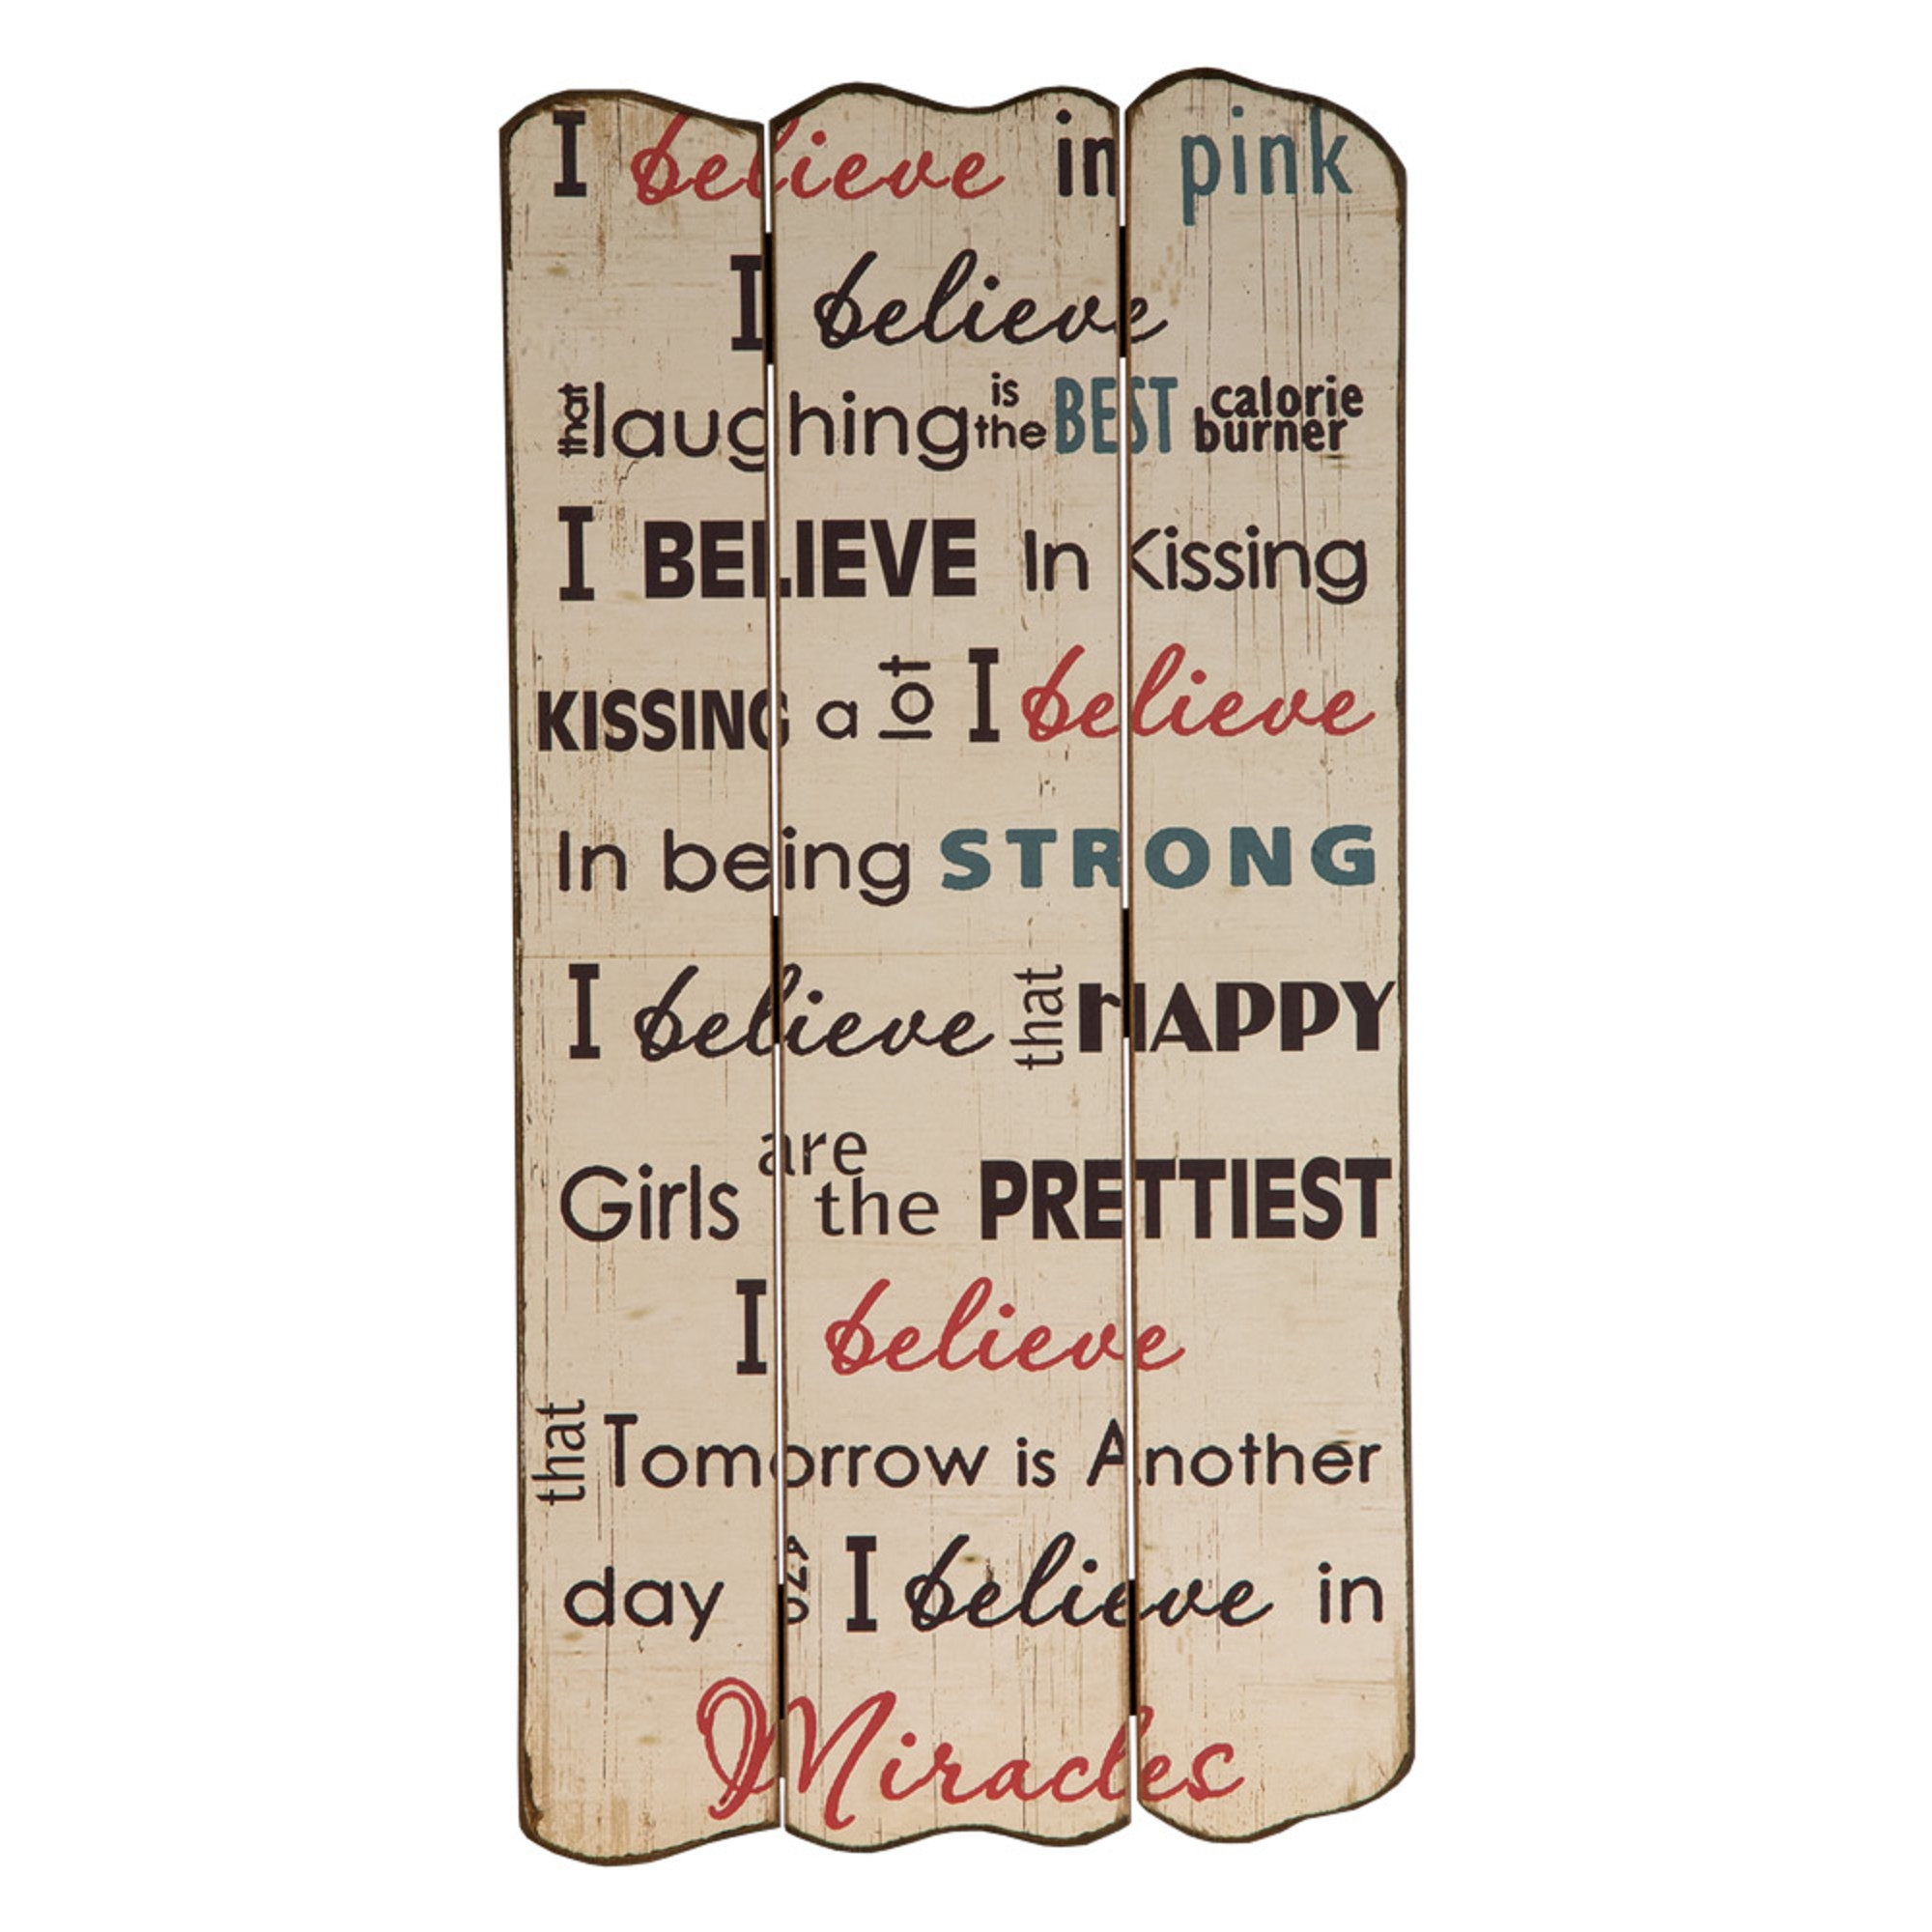 I believe in pink
I believe
that laughing is the BEST calorie burner
I BELIEVE In Kissing
KISSING a lot I believe
In being STRONG
I believe that HAPPY
Girls are the PRETTIEST
I believe
that Tomorrow is Another
day I believe in
Miracles